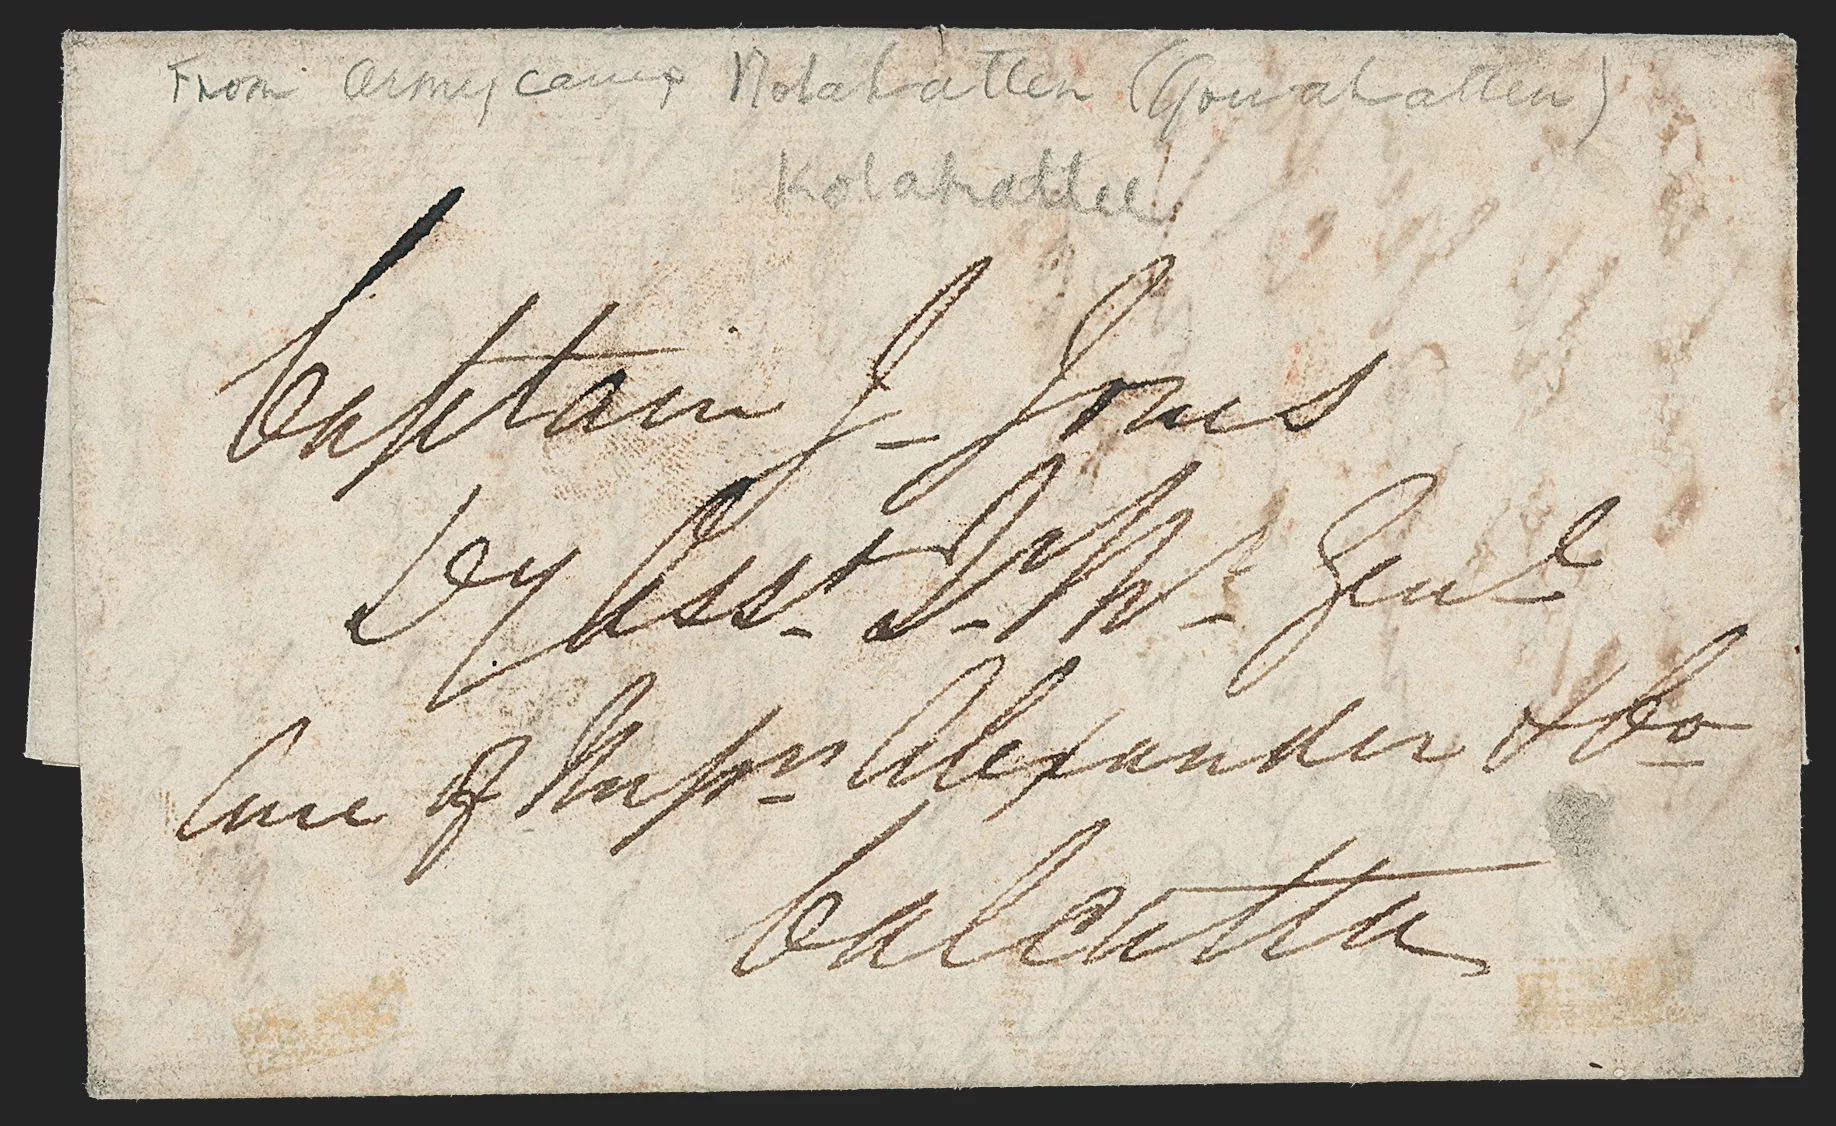 From Army camp Nolahatten (Gowahatten)
Kolahattee
Captain J. Jones
Dy Asst. Qr Mr. Genl
Care of Messrs. Alexander & Co
Calcutta